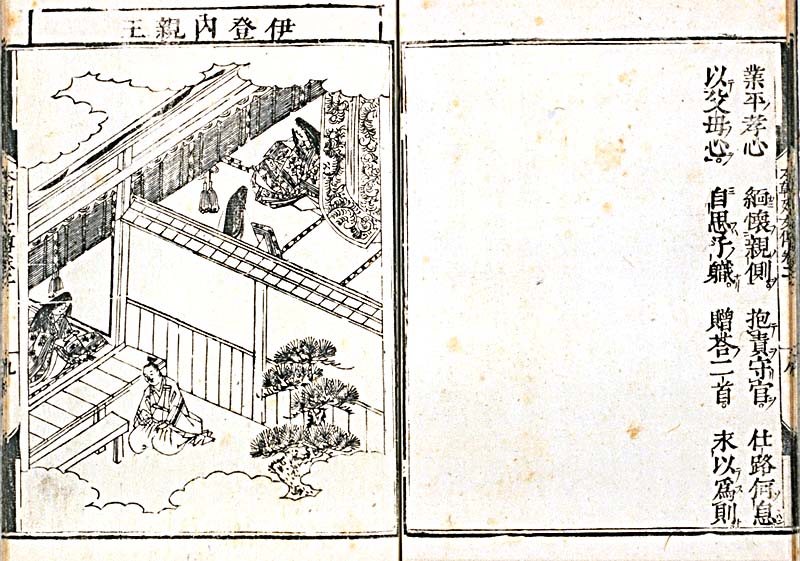 業平孝心 緬懷親側 抱責守官 仕路何息
以父母心 自思子軄 贈荅二首 永以爲則
伊登内親王